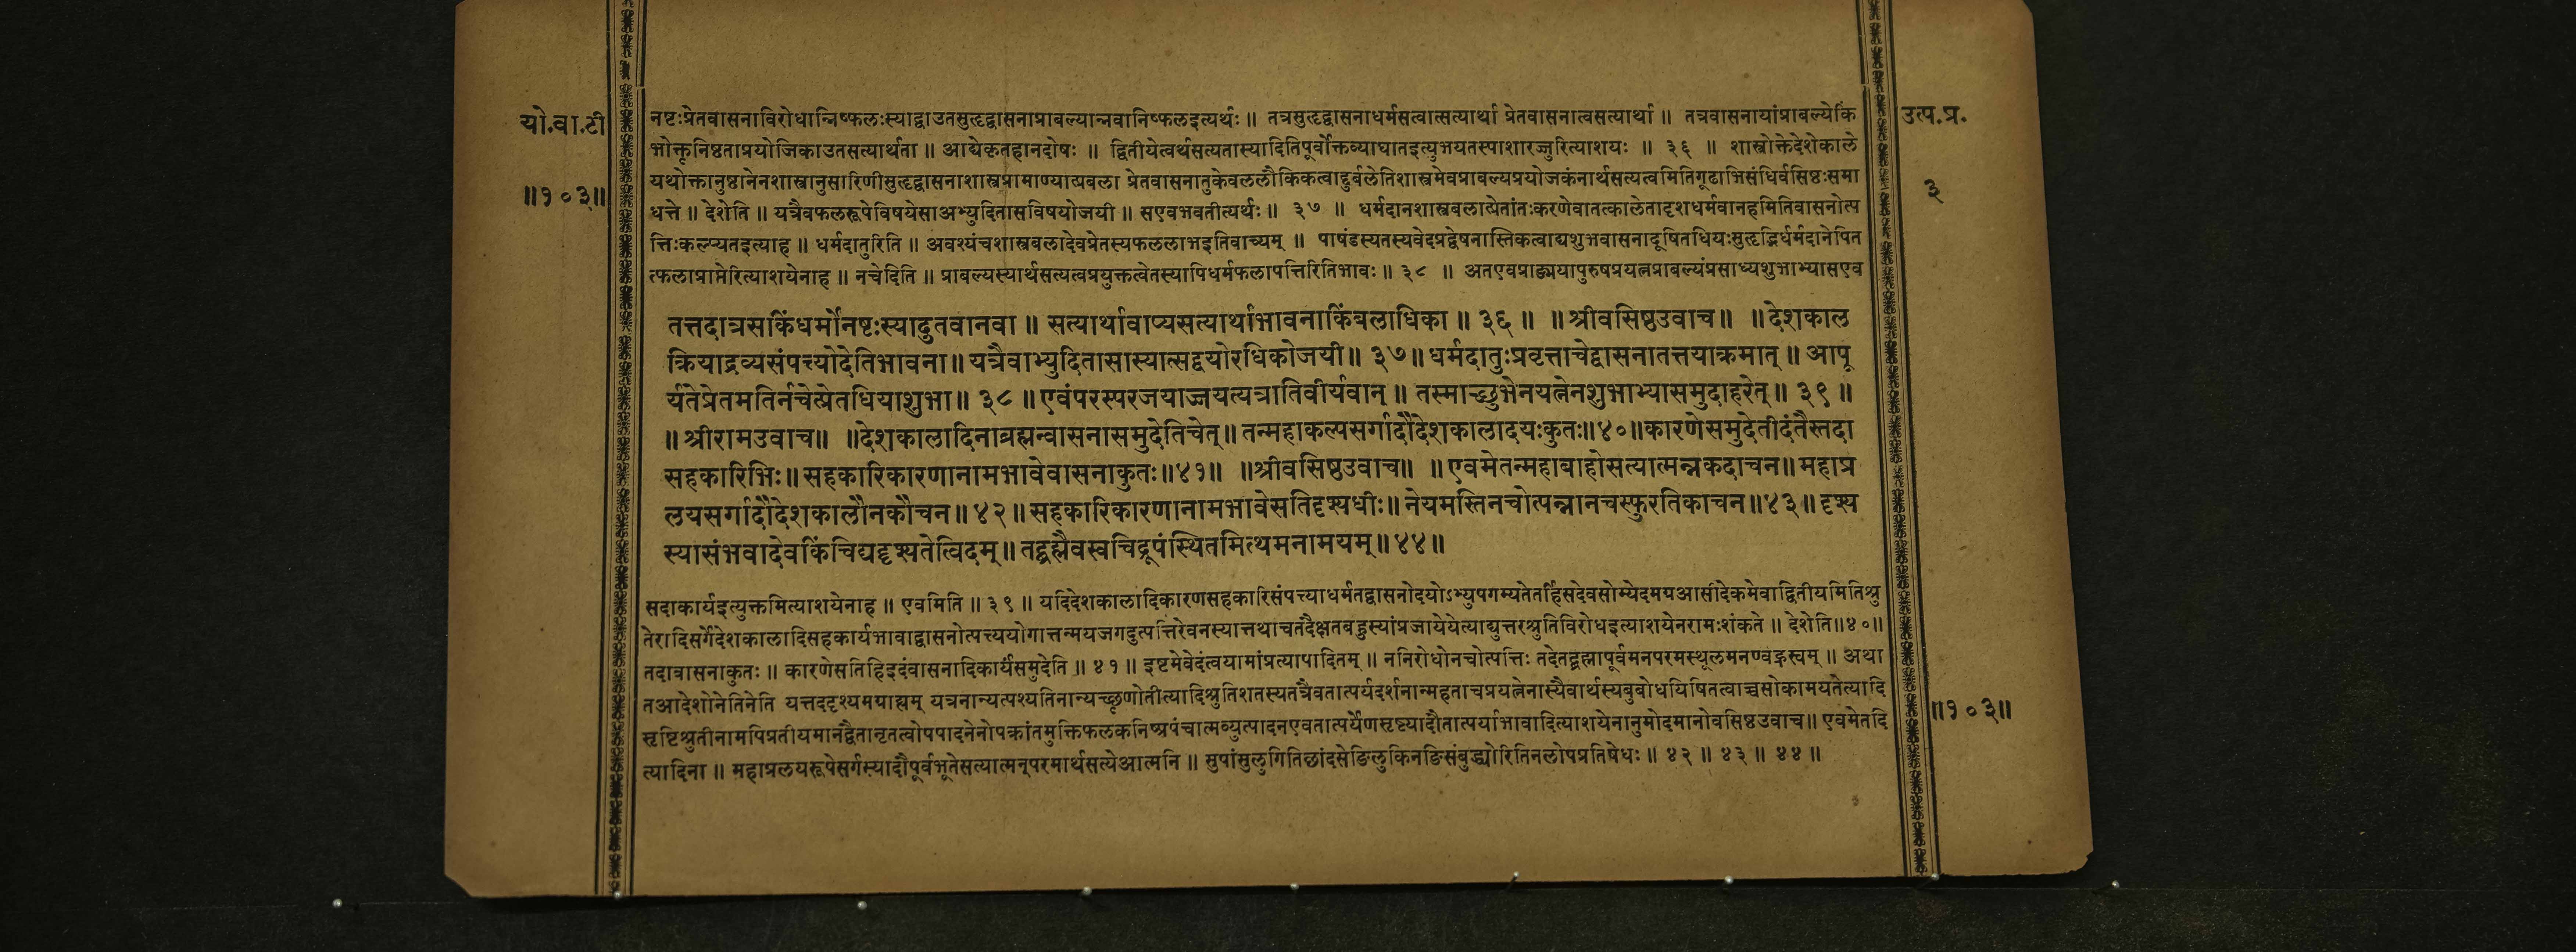 यो.वा.टी
॥१०३॥
उत्प.प्र.
३
नष्टःप्रेतवासनाविरोधान्निष्फलःस्याद्वाउतसुहृद्वासनाप्राबल्यान्नवानिष्फलइत्यर्थः ॥ तत्रसुहृद्वासनाधर्मसत्वात्सत्यार्था प्रेतवासनात्वसत्यार्था ॥ तत्रवासनायांप्राबल्येकिं
भोक्तृनिष्ठताप्रयोजिकाउतसत्यार्थता ॥ आद्येकृतहानदोषः ॥ द्वितीयेत्वर्थसत्यतास्यादितिपूर्वोक्तव्याघातइत्युभयतस्पाशारज्जुरित्याशयः ॥ ३६ ॥ शास्त्रोक्तेदेशेकाले
यथोक्तानुष्ठानेनशास्त्रानुसारिणीसुहृद्वासनाशास्त्रप्रामाण्यात्प्रबला प्रेतवासनातुकेवललौकिकत्वाद्दुर्बलेतिशास्त्रमेवप्राबल्यप्रयोजकंनार्थसत्यत्वमितिगूढाभिसंधिर्वसिष्ठःसमा
धत्ते ॥ देशेति ॥ यत्रैवफलरूपेविषयेसाअभ्युदितासविषयोजयी ॥ सएवभवतीत्यर्थः ॥ ३७ ॥ धर्मदानशास्त्रबलात्प्रेतांतःकरणेवातत्कालेतादृशधर्मवानहमितिवासनोत्प
त्तिःकल्प्यतइत्याह ॥ धर्मदातुरिति ॥ अवश्यंचशास्त्रबलादेवप्रेतस्यफललाभइतिवाच्यम् ॥ पाषंडस्यतस्यवेदप्रद्वेषनास्तिकत्वाद्यशुभवासनादूषितधियःसुहृद्भिर्धर्मदानेपित
त्फलाप्राप्तेरित्याशयेनाह ॥ नचेदिति ॥ प्राबल्यस्यार्थसत्यत्वप्रयुक्तत्वेतस्यापिधर्मफलापत्तिरितिभावः ॥ ३८ ॥ अतएवप्राङ्मयापुरुषप्रयत्नप्राबल्यंप्रसाध्यशुभाभ्यासएव
तत्तदात्रसकिंधर्मोनष्टःस्यादुतवानवा ॥ सत्यार्थावाप्यसत्यार्थाभावनाकिंबलाधिका ॥ ३६ ॥ ॥ श्रीवसिष्ठउवाच ॥ ॥ देशकाल
क्रियाद्रव्यसंपत्त्योदेतिभावना ॥ यत्रैवाभ्युदितासास्यात्सद्वयोरधिकोजयी ॥ ३७ ॥ धर्मदातुःप्रवृत्ताचेद्वासनातत्तयाक्रमात् ॥ आपू
र्यतेप्रेतमतिर्नचेत्प्रेतधियाशुभा ॥ ३८ ॥ एवंपरस्परजयाज्जयत्यत्रातिवीर्यवान् ॥ तस्माच्छुभेनयत्नेनशुभाभ्यासमुदाहरेत् ॥ ३९ ॥
॥ श्रीरामउवाच ॥ ॥ देशकालादिनाब्रह्मन्वासनासमुदेतिचेत् ॥ तन्महाकल्पसर्गादौदेशकालादयःकुतः ॥ ४० ॥ कारणेसमुदेतीदंतैस्तदा
सहकारिभिः ॥ सहकारिकारणानामभावेवासनाकुतः ॥ ४१ ॥ ॥ श्रीवसिष्ठउवाच ॥ ॥ एवमेतन्महाबाहोसत्यात्मन्नकदाचन ॥ महाप्र
लयसर्गादौदेशकालौनकौचन ॥ ४२ ॥ सहकारिकारणानामभावेसतिदृश्यधीः ॥ नेयमस्तिनचोत्पन्नानचस्फुरतिकाचन ॥ ४३ ॥ दृश्य
स्यासंभवादेवकिंचिद्यद्दृश्यतेत्विदम् ॥ तद्ब्रह्मैवस्वचिद्रूपंस्थितमित्थमनामयम् ॥ ४४ ॥
सदाकार्यइत्युक्तमित्याशयेनाह ॥ एवमिति ॥ ३९ ॥ यदिदेशकालादिकारणसहकारिसंपत्त्याधर्मतद्वासनोदयोऽभ्युपगम्यतेतर्हिसदेवसोम्येदमग्रआसीदेकमेवाद्वितीयमितिश्रु
तेरादिसर्गेदेशकालादिसहकार्यभावाद्वासनोत्पत्त्ययोगात्तन्मयजगदुत्पत्तिरेवनस्यात्तथाचतदैक्षतबहुस्यांप्रजायेयेत्याद्युत्तरश्रुतिविरोधइत्याशयेनरामःशंकते ॥ देशेति ॥ ४० ॥
तदावासनाकुतः ॥ कारणेसतिहिइदंवासनादिकार्यंसमुदेति ॥ ४१ ॥ इष्टमेवेदंत्वयामांप्रत्यापादितम् ॥ ननिरोधोनचोत्पत्तिः तदेतद्ब्रह्मापूर्वमनपरमस्थूलमनण्वह्रस्वम् ॥ अथा
तआदेशोनेतिनेति यत्तददृश्यमग्राह्यम् यत्रनान्यत्पश्यतिनान्यच्छृणोतीत्यादिश्रुतिशतस्यतत्रैवतात्पर्यदर्शनान्महताचप्रयत्नेनास्यैवार्थस्यबुबोधयिषितत्वाच्चसोकामयतेत्यादि
सृष्टिश्रुतीनामपिप्रतीयमानद्वैतानृतत्वोपपादनेनोपक्रांतमुक्तिफलकनिष्प्रपंचात्मव्युत्पादनएवतात्पर्येणसृष्ट्यादौतात्पर्याभावादित्याशयेनानुमोदमानोवसिष्ठउवाच ॥ एवमेतदि
त्यादिना ॥ महाप्रलयरूपेसर्गस्यादौपूर्वभूतेसत्यात्मन्परमार्थसत्येआत्मनि ॥ सुपांसुलुगितिछांदसेङिलुकिनङिसंबुद्ध्योरितिनलोपप्रतिषेधः ॥ ४२ ॥ ४३ ॥ ४४ ॥
॥१०३॥